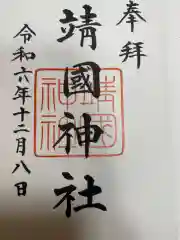 奉拝
靖國神社
靖国
神社
令和六年十二月八日